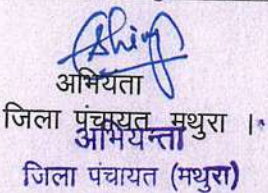 अभियता
जिला पंचायत मथुरा ।
अभियन्ता
जिला पंचायत (मथुरा)